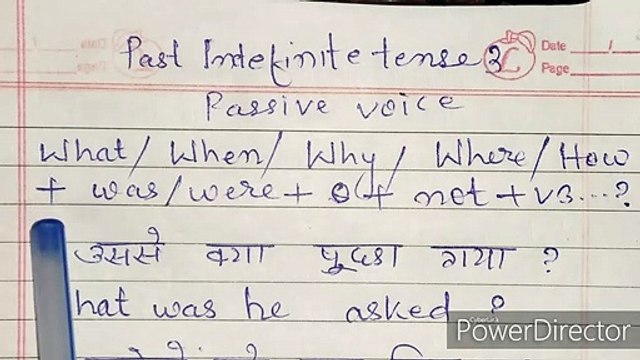 Past Indefinite tense
Date
Page
Passive voice
What / When / Why / Where / How
+ was/were + + not + V3 ...?
उससे क्या पूछा गया ?
hat was he asked ?
CyberLink
PowerDirector